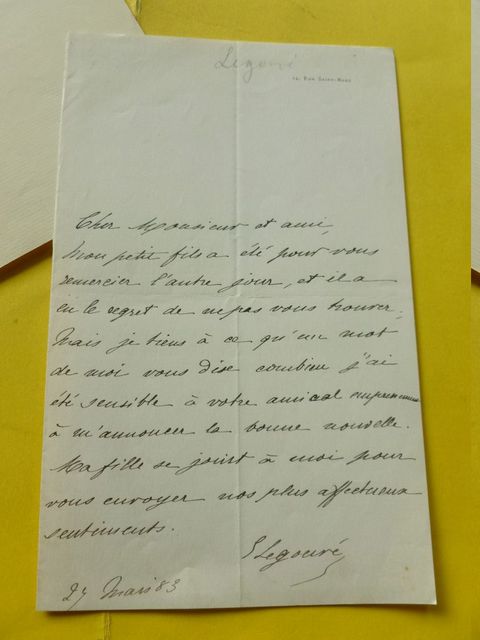 Legouvé
14, Rue Saint-Marc
Cher Monsieur et ami,
Mon petit fils a été pour vous
remercier l'autre jour, et il a
eu le regret de ne pas vous trouver;
Mais je tiens à ce qu'un mot
de moi vous dise combien j'ai
été sensible à votre amical empressement
à m'annoncer la bonne nouvelle.
Ma fille se joint à moi pour
vous envoyer nos plus affectueux
sentiments.
E Legouvé
27 Mars 83